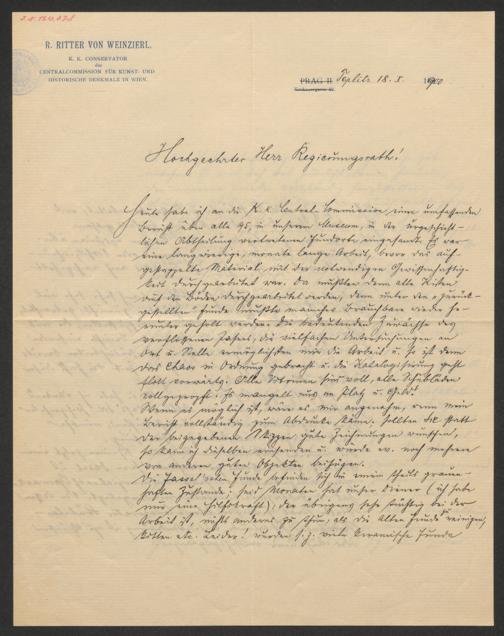 R. RITTER VON WEINZIERL.
K. K. CONSERVATOR
der
CENTRALCOMMISSION FÜR KUNST- UND
HISTORISCHE DENKMALE IN WIEN.
PRAG II Teplitz 18. X. 1900
Hochgeehrter Herr Regierungsrath!
Heute habe ich an die K. K. Central-Commission eine umfassenden
Bericht über alle 95, in unserem Museum, in der vorgeschicht-
lichen Abtheilung vertretenen Fundorte eingesandt. Es war
eine langwierige, monate lange Arbeit, bevor das auf-
gestappelte Material, mit der notwendigen Gewissenhaftig-
keit durchgearbeitet war. Da mußten denn alle Kisten
auf den Böden durchgearbeitet werden, denn unter den zurück-
gestellten Funde mußte manches Brauchbare wieder he-
runter geholt werden. Die bedeutenden Zuwächse des
verflossenen Jahres, die vielfachen Untersuchungen an
Ort u. Stelle ermöglichten mir die Arbeit u. so ist denn
das Chaos in Ordnung gebracht u. die Katalogisirung geht
flott vorwärts. Alle voll, alle Schubladen
vollgepropft. Es mangelt nur an Platz u. Geld!
Wenn es möglich ist, wäre es mir angenehm, wenn mein
Bericht vollständig zum Abdrucke käme. Sollten Sie statt
der beigegebenen Skizzen gute Zeichnungen wünschen,
so kann ich dieselben einsenden u. würde ev. noch mehrere
von anderen guten Objekten beifügen.
Die Funde befinden sich in einem theils grauen-
haften Zustande; seit Monaten hat unser Diener (ich habe
nur eine Hilfskraft), der übrigens sehr tüchtig bei der
Arbeit ist, nichts anderes zu thun, als die alten Funde reinigen,
kitten etc. Leider! wurden s. z. viele keramische Funde